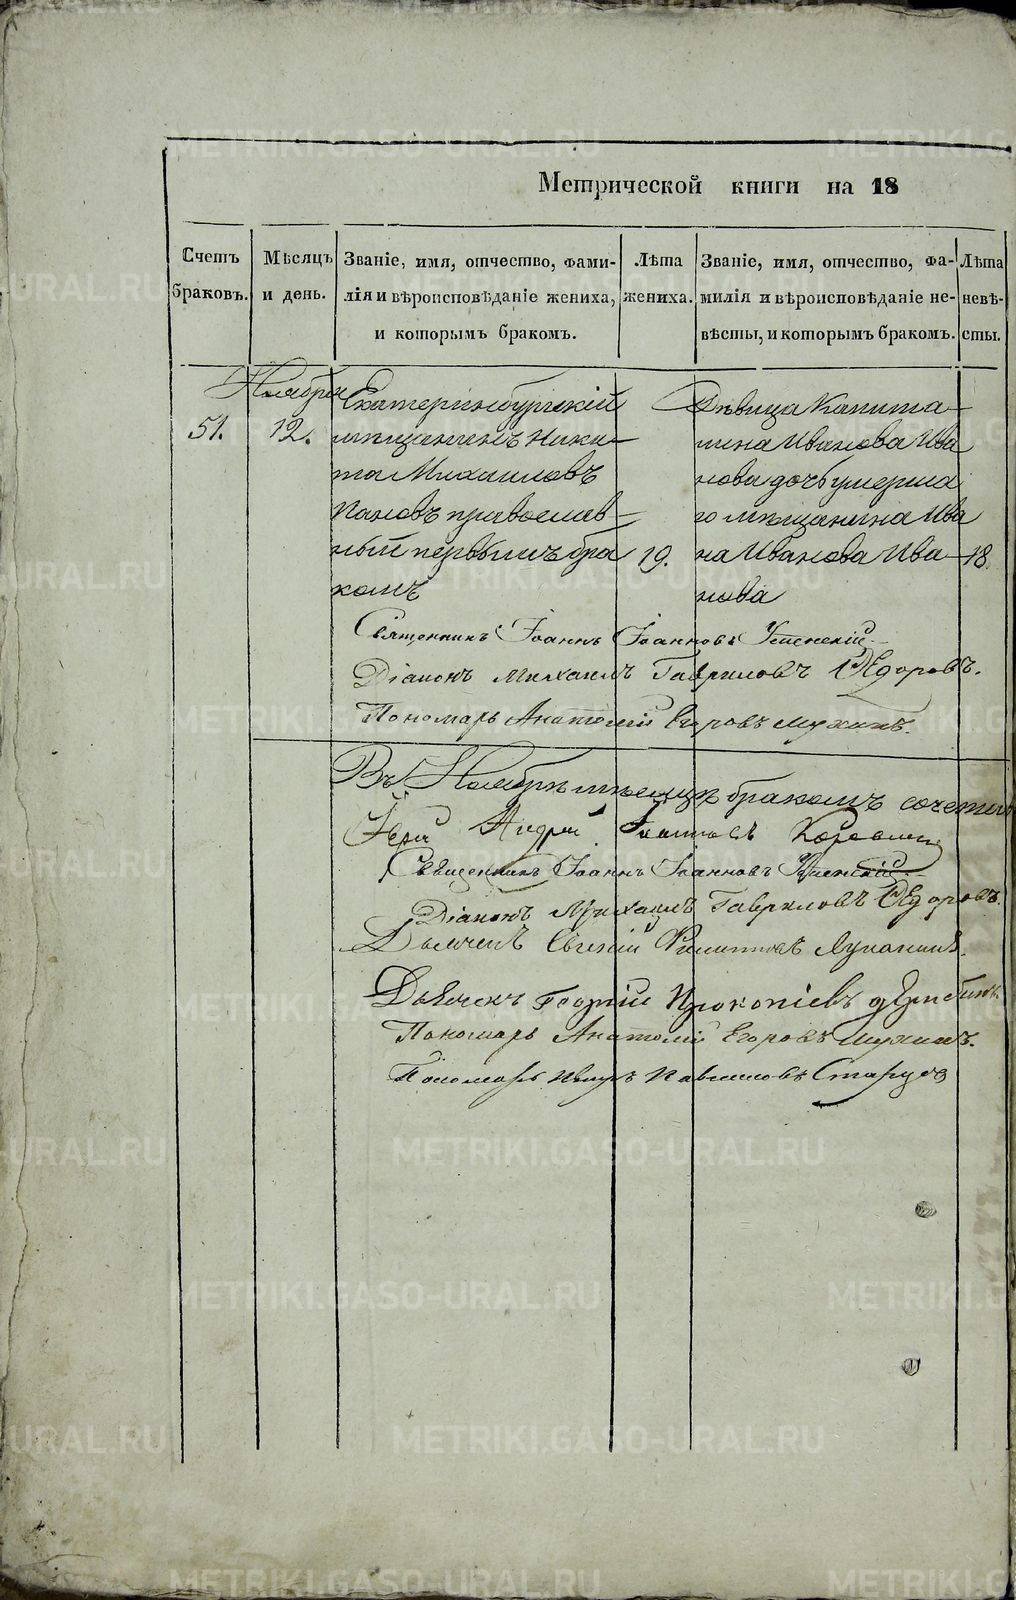 Метрической книги на 18
Счетъ браковъ.
Мѣсяцъ и день.
Званіе, имя, отчество, фами-
лія и вѣроисповѣданіе жениха,
и которымъ бракомъ.
Лѣта жениха.
Званіе, имя, отчество, фа-
милія и вѣроисповѣданіе не-
вѣсты, и которымъ бракомъ.
Лѣта невѣ-
сты.
Ноября
51.
12.
Екатеринбургскій
мѣщанинъ Ники-
та Михаиловъ
Пановъ православ-
ный первымъ бра
комъ
19.
Дѣвица Капита-
лина Иванова Ива
нова дочь умерша
го мѣщанина Ива
на Иванова Ива-
нова
18.
Священникъ Іоаннъ Іоанновъ Успенскій.
Діаконъ Михаилъ Гавриловъ Ѳедоровъ.
Пономарь Анатолій Егоровъ Мухинъ.
Въ Ноябрѣ мѣсяцѣ бракомъ сочетал
Іерей Андрей
Священникъ Іоаннъ Іоанновъ Успенскій
Діаконъ Михаилъ Гавриловъ Ѳедоровъ.
Дьячекъ Евгеній Филипповъ Луканинъ.
Дьячекъ Георгій Прокопіевъ
Пономарь Анатолій Егоровъ Мухинъ.
Пономарь Павлиновъ Старцев
METRIKI.GASO-URAL.RU